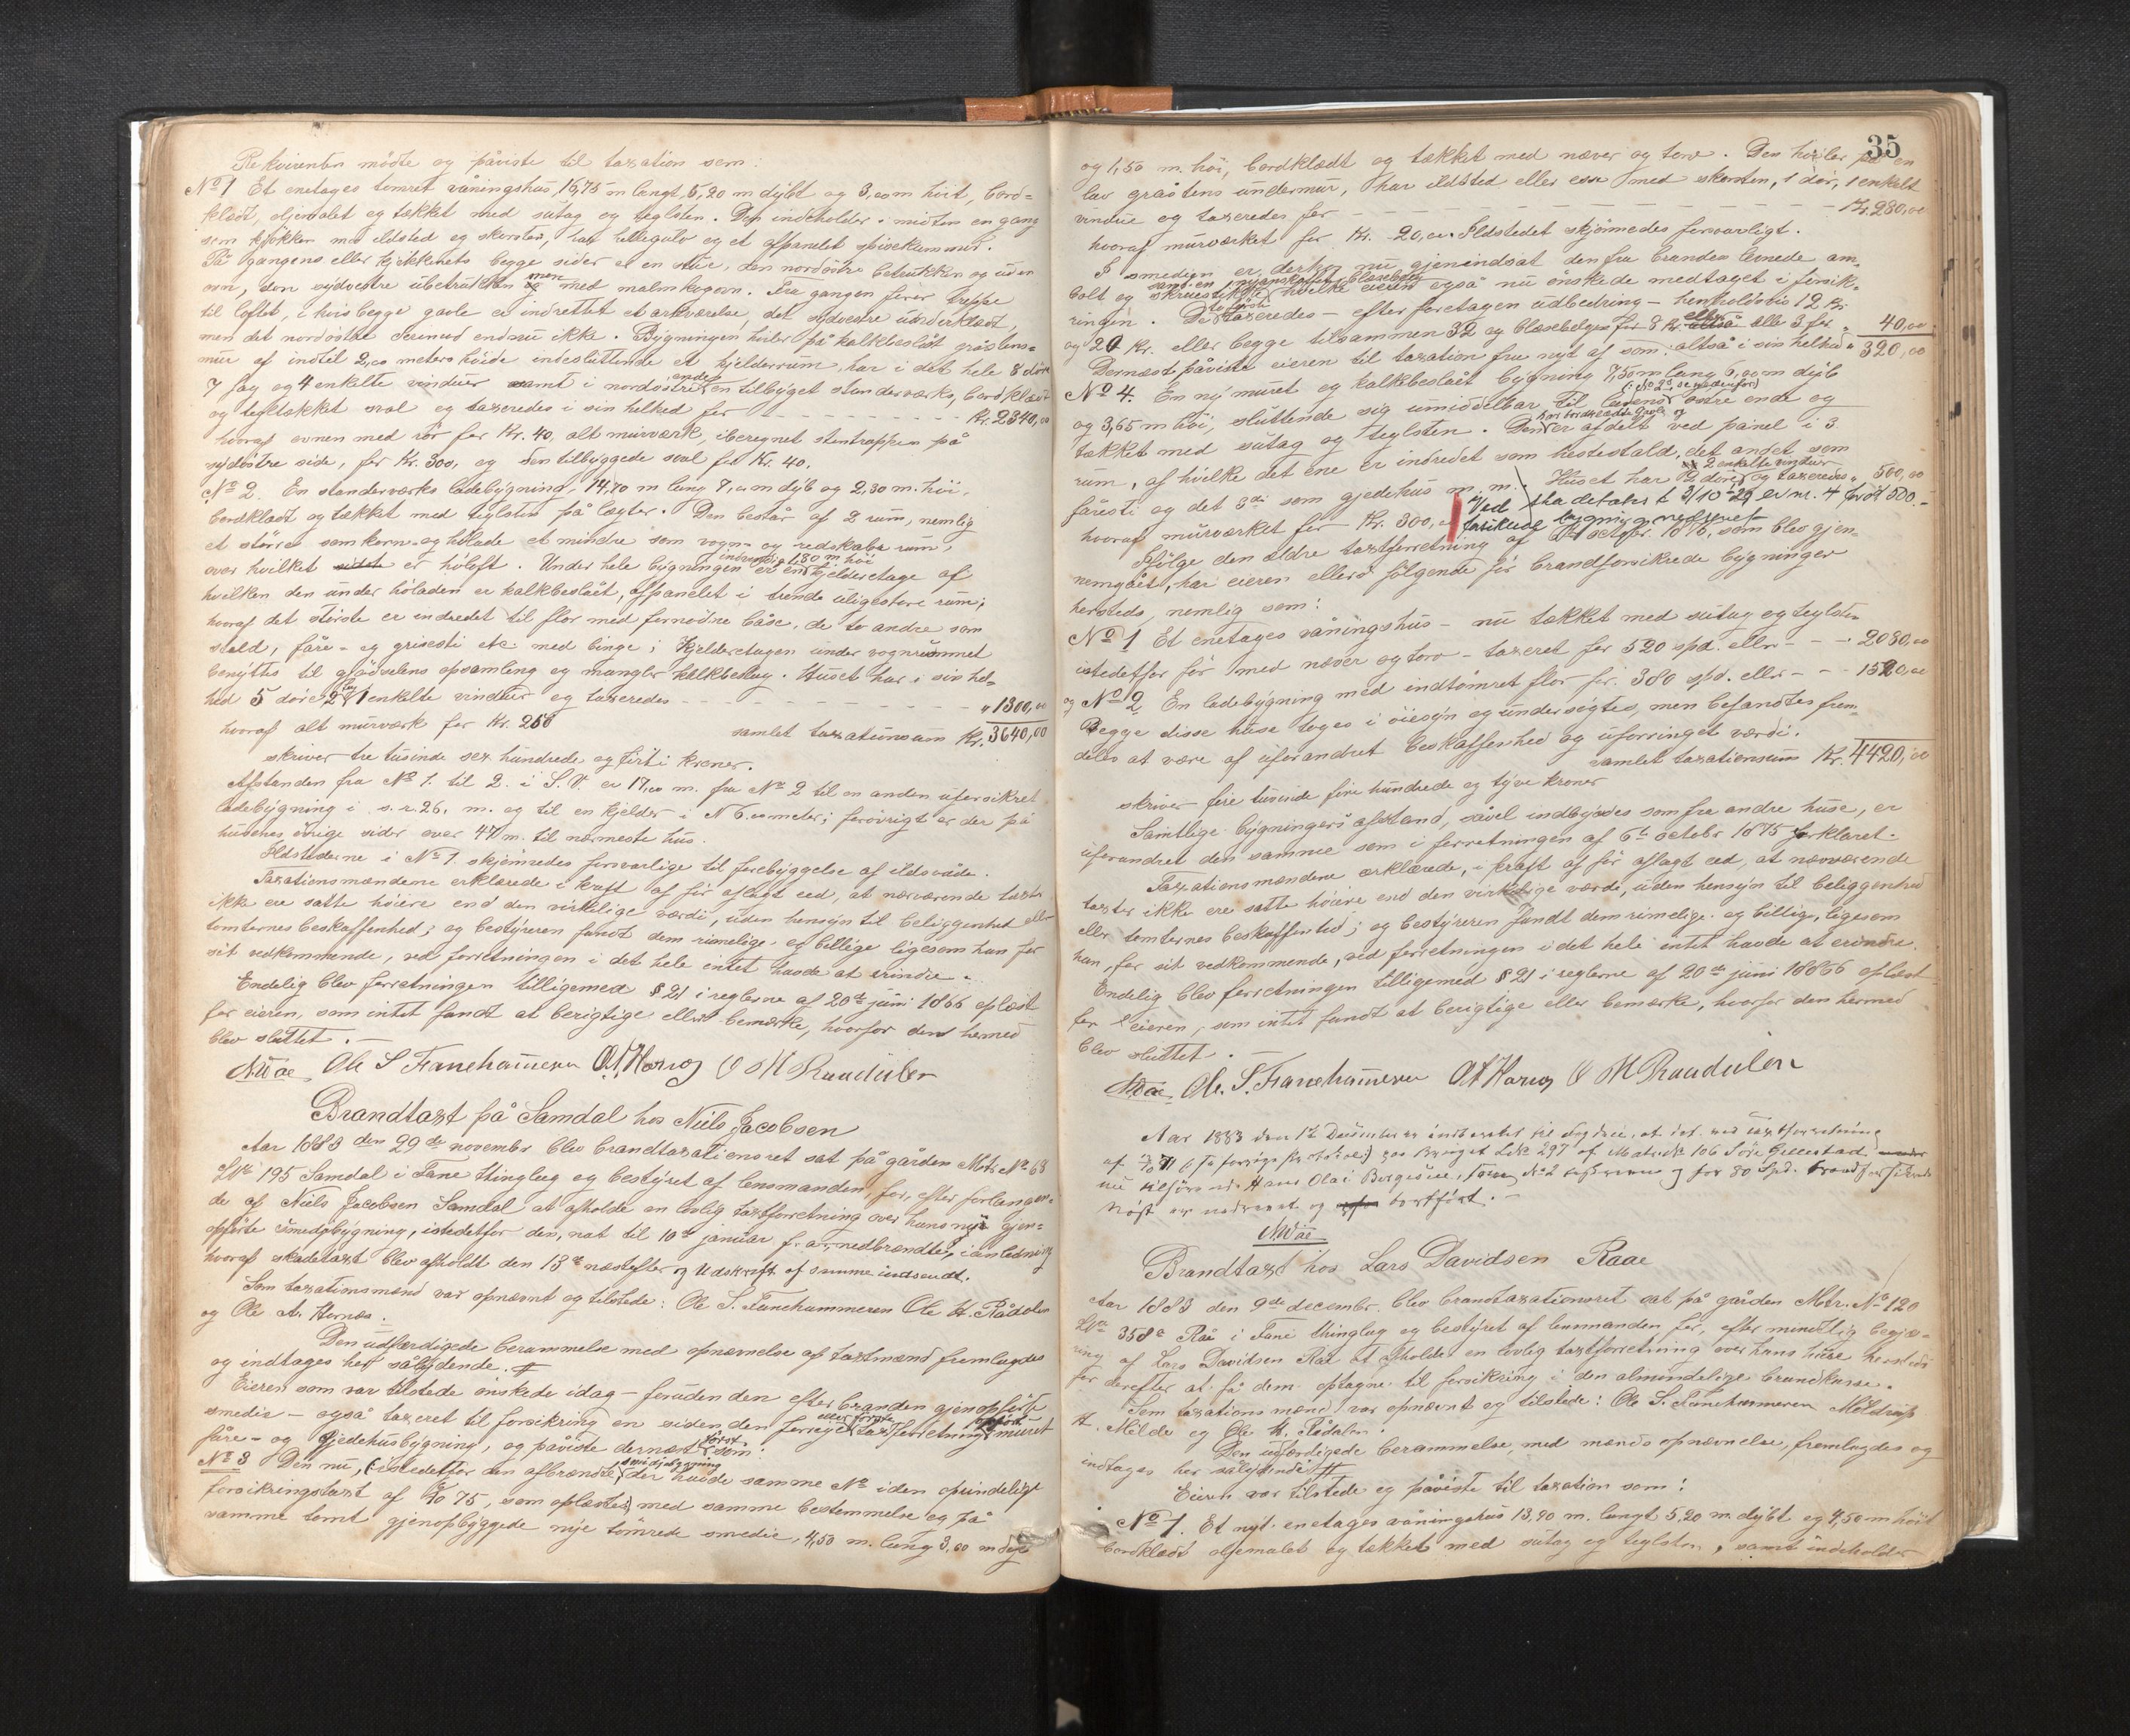 Rekvirenten mödte og påviste til taxation som:
No 1 Et enetages tömret våningshus, 15,75 m langt, 5,20 m dybt og 3,00 m höit, bord=
klædt, oljemalet og tækket med sutag og teglsten. Den indeholder i midten en gang
som kjökken med ildsted og skorsten, har hellegulv og et afpanelet spisekammer.
På gangens eller kjökkenets begge sider er en stue, den nordöstre betrukken og uden
ovn, den sydvestre ubetrukken men med malmkogovn. Fra gangen förer trappe
til loftet, i hvis begge gavle er indrettet et arkværelse, det sydvestre
men det nordöstre ikke. Bygningen hviler på kalkbeslået gråstens=
mur af indtil 2,00 meters höide indesluttende et kjelderrum, har i det hele 8 döre
7 fag og 4 enkelte vinduer samt i nordöstre ende en tilbyget standerværks, bordklædt
og tegltækket sval og taxeredes i sin helhed for - - - Kr. 2340,00
hvoraf ovnen med rör for Kr. 40, alt murværk, iberegnet stentrappen på
sydöstre side, for Kr. 300, og den tilbyggede sval for Kr. 40.
No 2. En standerværks ladebygning, 14,70 m lang 7, m dyb og 2,30 m. höi,
bordklædt og tækket med teglsten på lægter. Den består af 2 rum, nemlig
et större som korn- og hölade et mindre som vogn- og redskabs rum,
over hvilket er höloft. Under hele bygningen er en indvendig 1,80 m höi kjelderetage af
hvilken den under höladen er kalkbeslået, afpanelet i trende uligestore rum,
hvoraf det störste er indredet til flor med fornödne båse, de to andre som
stald, fåre- og grisesti etc med binge; Kjelderetagen under vognrummet
benyttes til gjödselens opsamling og mangler kalkbeslag. Huset har i sin hel=
hed 5 döre, 2 fag 1 enkelte vinduer og taxeredes - - - " 1300,00
hvoraf alt murværk for Kr. 260 samlet taxationsum Kr. 3640,00
skriver tre tusinde sex hundrede og firti kroner.
Afstanden fra No 1. til 2. i S.V. er 17,00 m. fra No 2 til en anden uforsikret
ladebygning i s.v. 26. m. og til en kjelder i N 6.00 meter; forövrigt er der på
husenes övrige sider over 47 m. til nærmeste hus.
Ildstederne i No 1. skjönnedes forsvarlige til forebyggelse af ildsvåde.
Taxationsmændene erklærede i kraft af för aflagt eed, at nærværende taxter
ikke ere satte höiere end den virkelige værdi, uden hensyn til beliggenhed eller
tomternes beskaffenhed; og bestyreren fandt dem rimelige og billige ligesom han for
sit vedkommende, ved forretningen i det hele intet havde at erindre.
Endelig blev forretningen tilligemed § 21 i reglerne af 20de juni 1866 oplæst
for eieren, som intet fandt at berigtige eller bemærke, hvorfor den hermed
blev sluttet. —
NWåe Ole S Fanehammeren O.A. Hernæs O H Raadalen
Brandtaxt på Samdal hos Niels Jacobsen
Aar 1883 den 29de november blev brandtaxationsret sat på gården Mtr. No 68
LNo 195 Samdal i Fane thinglag og bestyret af lensmanden, for, efter forlangen=
de af Niels Jacobsen Samdal at afholde en lovlig taxtforretning over hans nye gjen=
opförte smedjebygning, istedetfor den, nat til 10de januar f. a. nedbrændte, i anledning
hvoraf skadetaxt blev afholdt den 13de næstefter og Udskrift af samme indsendt.
Som taxationsmænd var opnævnt og tilstede: Ole S. Fanehammeren Ole H. Rådalen
og Ole A. Hernæs.
Den udfærdigede berammelse med opnævnelse af taxtmænd fremlagdes
og indtages her sålydende. #
Eieren som var tilstede önskede idag - foruden den efter branden gjenopförte
smedie - også taxeret til forsikring en siden den forrige eller förste taxtforretning opfört muret
fåre- og gjedehusbygning, og påviste dernæst först som:
No 3 Den nu, (istedetfor den afbrændte smidjebygning der havde samme No i den oprindelige
forsikringstaxt af 6/10 75, som oplæstes) med samme bestemmelse og på
samme tomt gjenopbyggede nye tömrede smedie, 4,50 m. lang 3,00 m dyb
35
og 1,50 m. höi, bordklædt og tækket med næver og torv. Den hviler på en
lav gråstens undermur, har ildsted eller esse med skorsten, 1 dör, 1 enkelt
vindue og taxeredes for - - - Kr. 280,00
hvoraf murværket for Kr. 20,00. Ildstedet skjönnedes forsvarligt.
I smedien er derhos nu gjenindsat den fra branden levnede am-
bolt og skruestikke, samt en nyanskaffet blæsebelg hvilke eieren også nu önskede medtaget i forsik-
ringen. De to förste taxeredes - efter foretagen udbedring - henholdsvis 12 Kr.
og 20 Kr. eller begge tilsammen 32 og blæsebelgen for 8 Kr. eller alle 3 for " 40,00
Dernæst påviste eieren til taxation fra nyt af som: altså i sin helhed " 320,00
No 4. En ny muret og kalkbeslået bygning 7,50 m lang 6,00 m dyb
og 3,65 m höi, sluttende sig umiddelbar til ladens (: No 2, se nedenfor) östre ende og
tækket med sutag og teglsten. Den har bordklædte gavle og er afdelt ved panel i 3
rum, af hvilke det ene er indredet som hestestald, det andet som
fåresti og det 3de som gjedehus m. m. Huset har 2 döre, 2 enkelte vinduer og taxeredes " 500,00
hvoraf murværket for Kr. 300,00 Ved skadetakst 3/10-29 er nr. 4 för 500.-
forsikrede bygning nedrevet
Ifölge den ældre taxtforretning af 6te octobr. 1875, som blev gjen-
nemgået, har eieren ellers fölgende för brandforsikrede bygninger
hersteds, nemlig som:
No 1 Et enetages våningshus - nu tækket med sutag og teglsten
istedetfor för med næver og torv - taxeret for 520 spd. eller - - - 2080,00
og No 2 En ladebygning med indtömret flor for. 380 spd. eller - - - 1520,00
Begge disse huse toges i öiesyn og undersögtes, men befandtes frem-
deles at være af uforandret beskaffenhed og uforringet værdi.
samlet taxationsum Kr. 4420,00
skriver fire tusinde fire hundrede og tyve kroner
Samtlige bygningers afstand, såvel indbyrdes som fra andre huse, er
uforandret den samme som i forretningen af 6te octobr 1875 forklaret.
Taxationsmændene erklærede, i kraft af för aflagt eed, at nærværende
taxter ikke ere satte höiere end den virkelige værdi, uden hensyn til beliggenhed
eller tomternes beskaffenhed; og bestyreren fandt dem rimelige og billige, ligesom
han, for sit vedkommende, ved forretningen i det hele intet havde at erindre.
Endelig blev forretningen tilligemed § 21 i reglerne af 20de juni 1866 oplæst
for eieren, som intet fandt at berigtige eller bemærke, hvorfor den hermed
blev sluttet. —
NWåe Ole. S. Fanehammeren O A Hernæs O H Raadalen
Aar 1883 den 17 December er indberettet til fogden, at det ved taxtforretning
af (Se forrige protokol) hos Brynjel LNo 297 af Matr. No 106 Söre Grimstad
nu tilhörende Hans Olai Borgesen, som No 2 for 80 Spd. brandforsikrede
nöst er nedrevet og bortfört. —
NWåe
Brandtaxt hos Lars Davidsen Raae
Aar 1883 den 9de decembr. blev brandtaxationsret sat på gården Mtr. No 120
LNo 358a Råe i Fane thinglag og bestyret af lensmanden for, efter mindtlig begjæ-
ring af Lars Davidsen Råe at afholde en lovlig taxtforretning over hans huse hersteds
for derefter at få dem optagne til forsikring i den almindelige brandkasse.
Som taxationsmænd var opnævnt og tilstede: Ole S. Fanehammeren Mildrup
H. Milde og Ole H. Rådalen.
Den udfærdigede berammelse, med mænds opnævnelse, fremlagdes og
indtages her sålydende #
Eieren var tilstede og påviste til taxation som:
No 1. Et nyt enetages våningshus 13,90 m. langt 5,20 m. dybt og 4,50 m höit
bordklædt oljemalet og tækket med sutag og teglsten, samt indeholder